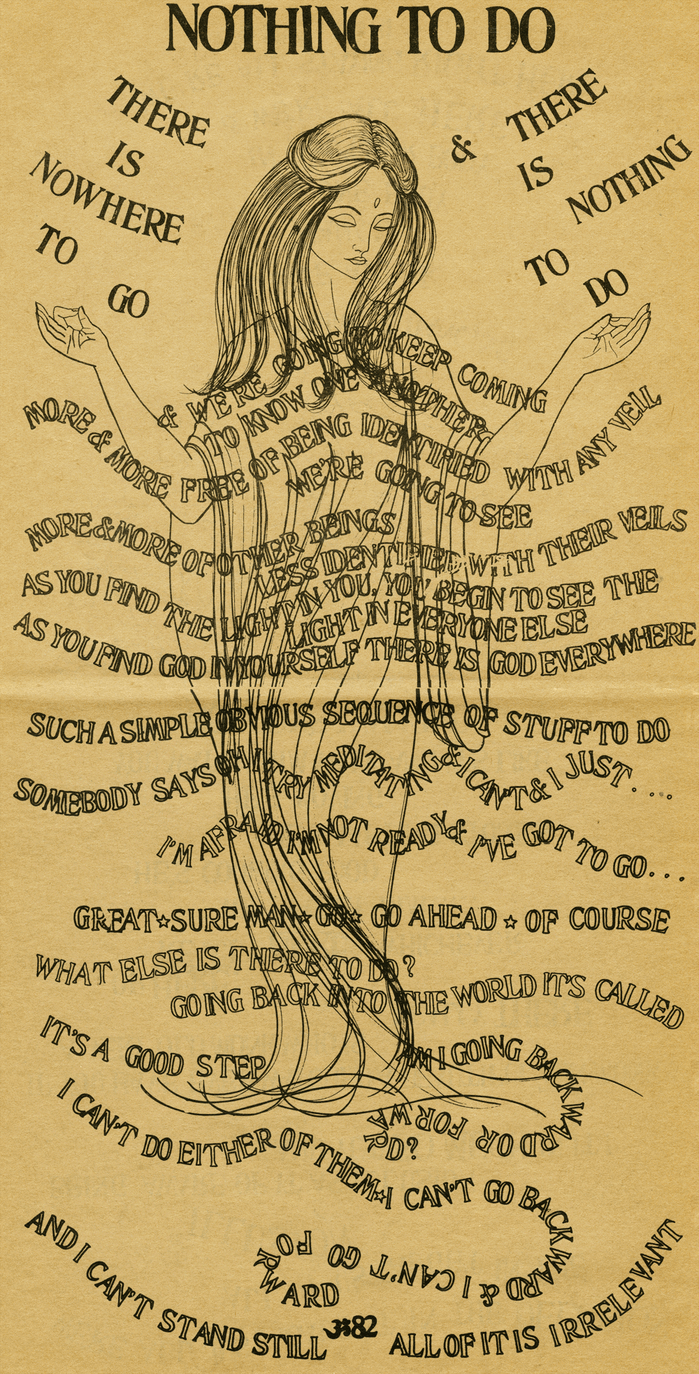 NOTHING TO DO
THERE
IS
NOWHERE
TO
GO
& THERE
IS
NOTHING
TO
DO
& WE'RE GOING TO KEEP COMING
TO KNOW ONE ANOTHER
MORE & MORE FREE OF BEING IDENTIFIED WITH ANY VEIL
WE'RE GOING TO SEE
MORE & MORE OF OTHER BEINGS
LESS IDENTIFIED WITH THEIR VEILS
AS YOU FIND THE LIGHT IN YOU, YOU BEGIN TO SEE THE
LIGHT IN EVERYONE ELSE
AS YOU FIND GOD IN YOURSELF THERE IS GOD EVERYWHERE
SUCH A SIMPLE OBVIOUS SEQUENCE OF STUFF TO DO
SOMEBODY SAYS OH I TRY MEDITATING & I CAN'T & I JUST....
I'M AFRAID I'M NOT READY & I'VE GOT TO GO...
GREAT☆SURE MAN☆GO☆ GO AHEAD ☆ OF COURSE
WHAT ELSE IS THERE TO DO?
GOING BACK INTO THE WORLD IT'S CALLED
IT'S A GOOD STEP
AM I GOING BACKWARD OR FORWARD?
I CAN'T DO EITHER OF THEM☆I CAN'T GO BACKWARD & I CAN'T GO FORWARD
AND I CAN'T STAND STILL
ॐ82
ALL OF IT IS IRRELEVANT